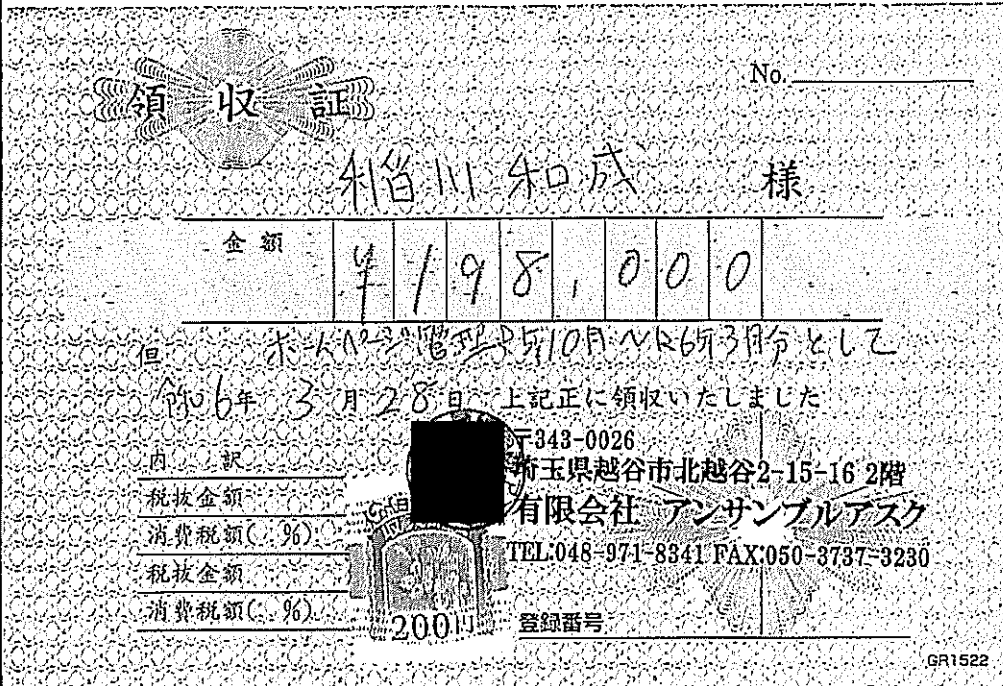 領収証
No.
稲川和成 様
金額 ¥198,000
但 ホームページ管理R5年10月〜R6年3月分として
令和6年3月28日 上記正に領収いたしました
内訳
税抜金額
消費税額( %)
税抜金額
消費税額( %)
200円
〒343-0026
埼玉県越谷市北越谷2-15-16 2階
有限会社 アンサンブルアスク
TEL:048-971-8341 FAX:050-3737-3230
登録番号
GR1522